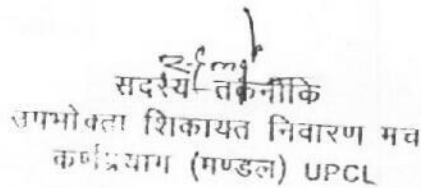 सदस्य तकनीकि
उपभोक्ता शिकायत निवारण मंच
कर्णप्रयाग (मण्डल) UPCL